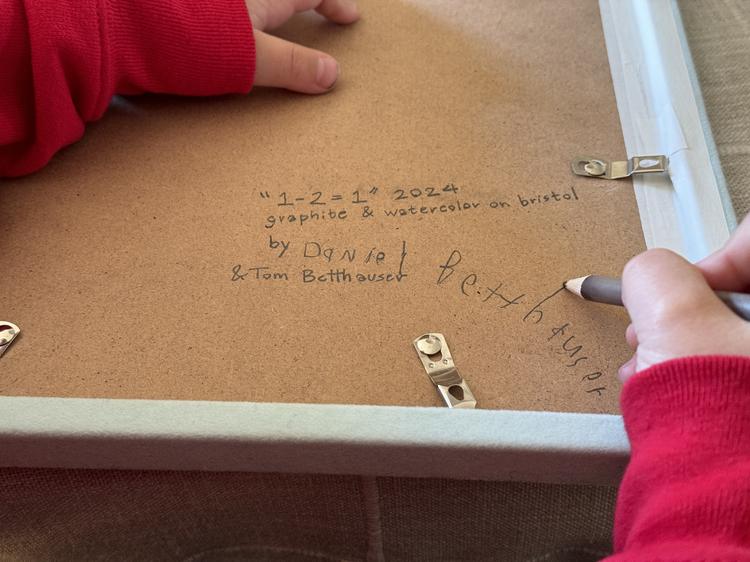 "1-2=1" 2024
graphite & watercolor on bristol
by Daniel Betthauser
& Tom Betthauser